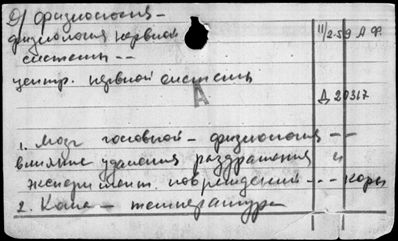 9) физиология –
физиология нервной 11/2-59 А Ф.
системы --
центр. нервной системы
А
Д 20317
1. мозг головной – физиология – –
влияние удаления раздражения и
эксперимент. повреждений - - - коры
2. Кожа – температура